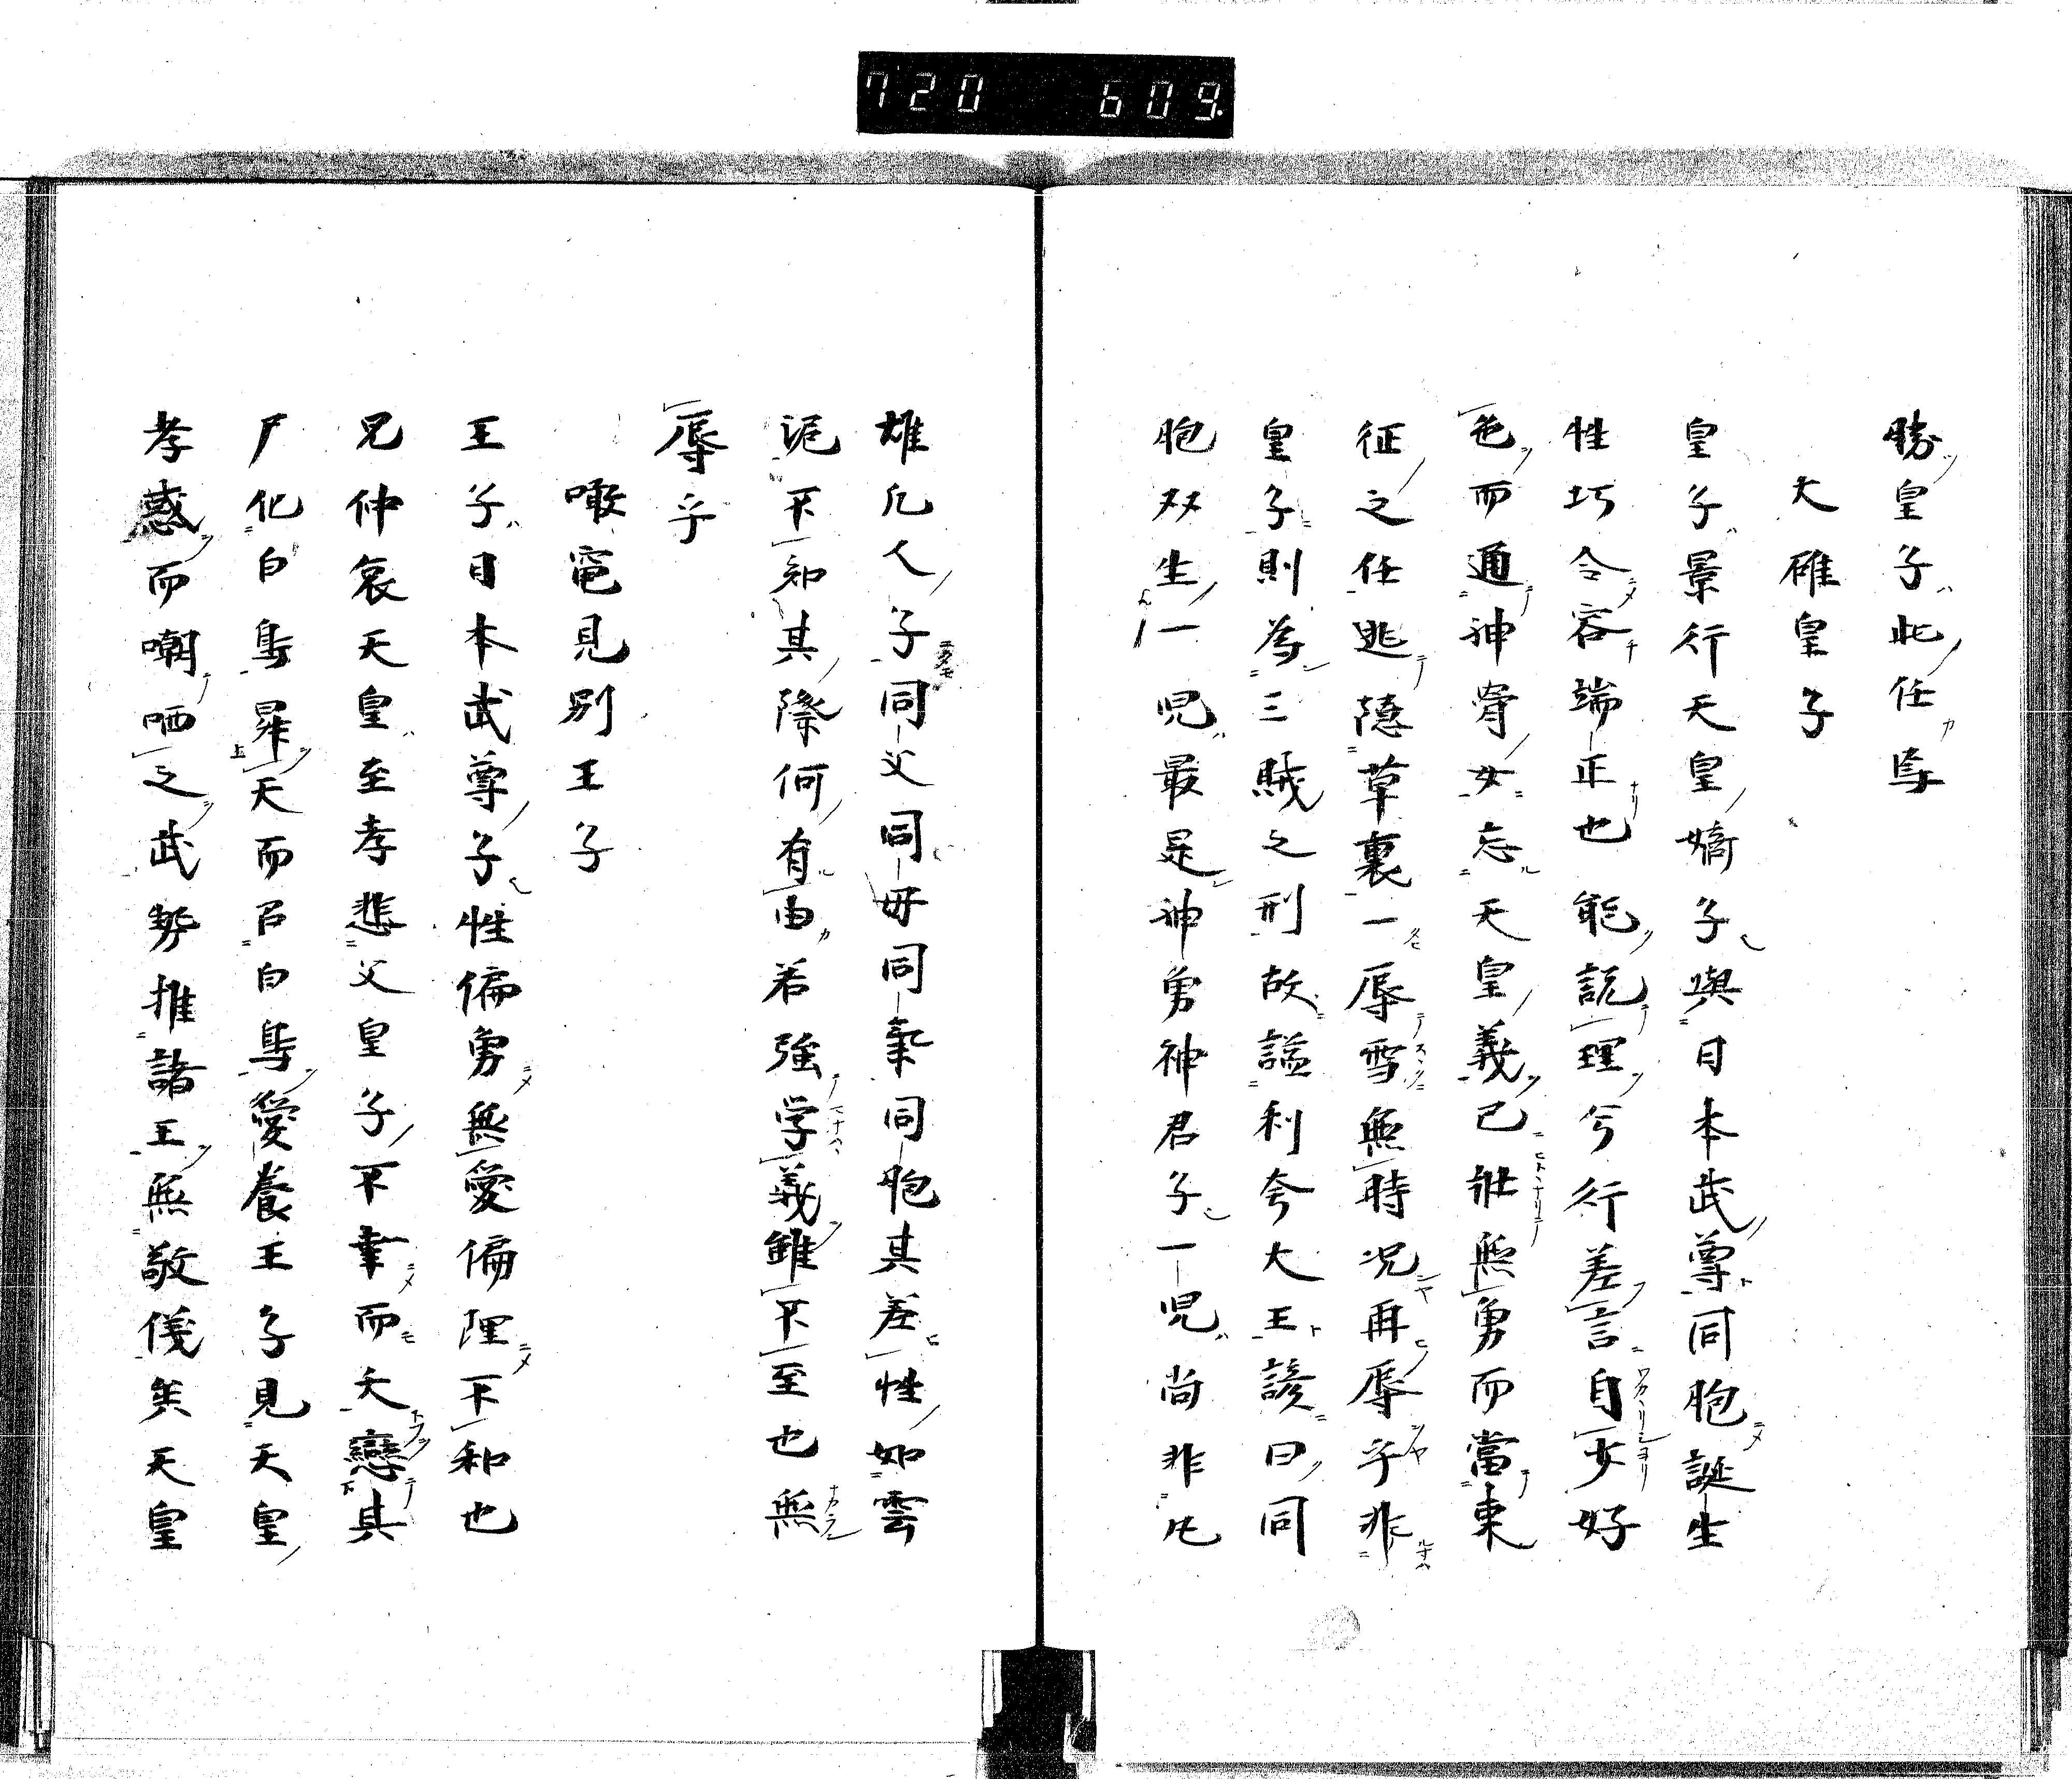 720 609.
勝皇子此任与
大碓皇子
皇子景行天皇嫡子與日本武尊同胞誕生
性巧令容端正也能説理兮行差言自少好
色而通神骨女忘天皇義已壯無勇而當東
征之任逃隠草裏一辱雪無時況再辱乎非
皇子則為三賊之刑故謚利夸大王諺曰同
胞双生一児最是神勇神君子一児尚非凡
雄凡人子同父同母同氣同胞其差性如雲
泥不知其際何有由若強学義雖不至也無
辱乎
噉竃見別王子
王子日本武尊子性偏勇無愛偏理不和也
兄仲哀天皇至孝悲父皇子不幸而夭戀其
尸化白鳥昇天而召白鳥愛養王子見天皇
孝感而嘲哂之武勢推諸王無敬儀矣天皇